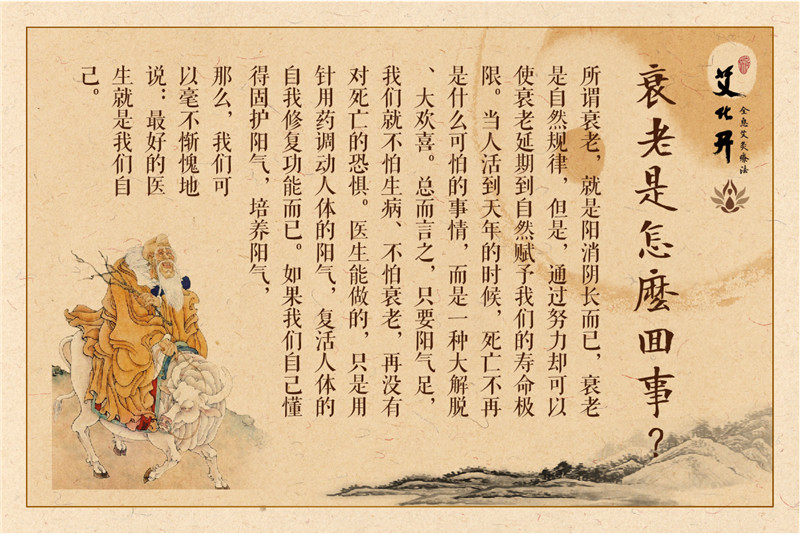 艾化开
全息艾灸療法
衰老是怎麽囬事?
所谓衰老，就是阳消阴长而已，衰老
是自然规律，但是，通过努力却可以
使衰老延期到自然赋予我们的寿命极
限。当人活到天年的时候，死亡不再
是什么可怕的事情，而是一种大解脱
、大欢喜。总而言之，只要阳气足，
我们就不怕生病、不怕衰老，再没有
对死亡的恐惧。医生能做的，只是用
针用药调动人体的阳气，复活人体的
自我修复功能而已。如果我们自己懂
得固护阳气，培养阳气，
那么，我们可
以毫不惭愧地
说：最好的医
生就是我们自
己。